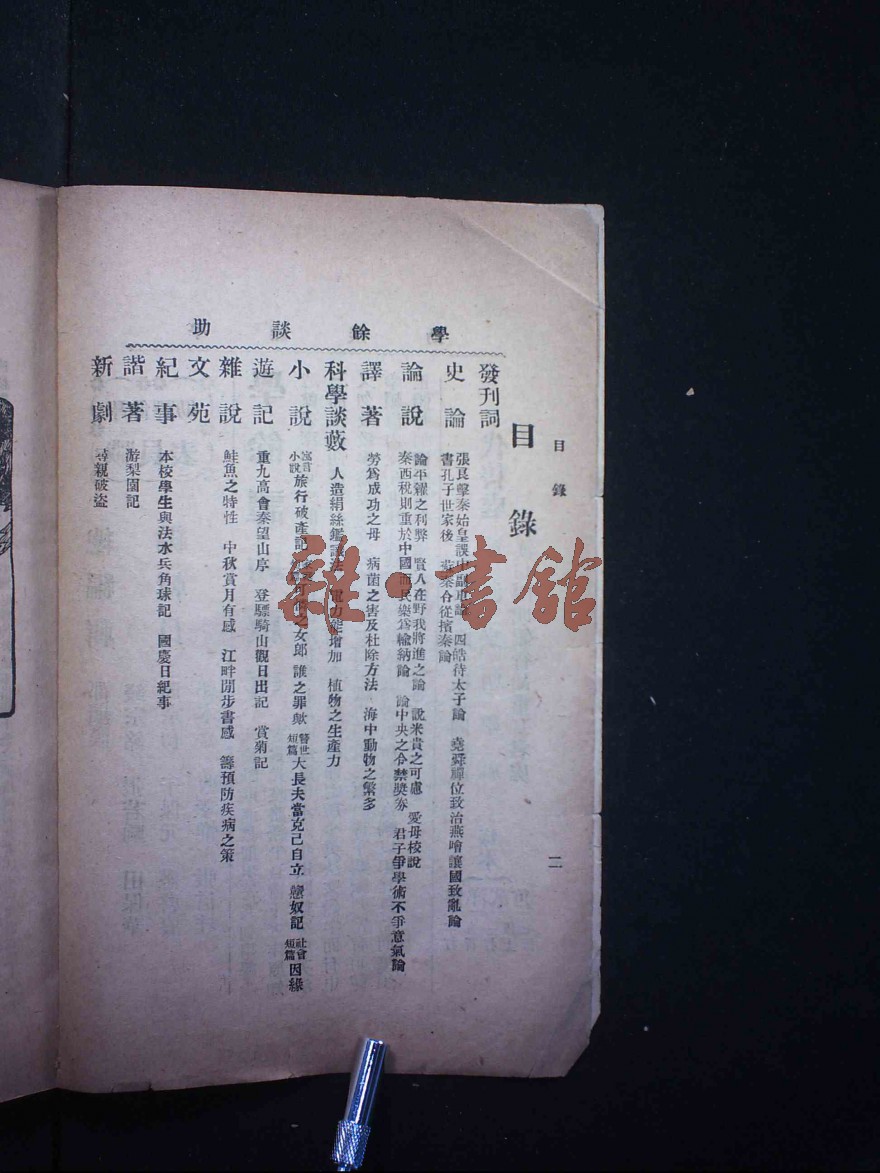 學餘談助
目錄
二
目錄
發刊詞
史論
張良擊秦始皇誤中副車論 四皓待太子論 堯舜禪位致治燕噲讓國致亂論
書孔子世家後 蘇秦合從擯秦論
論說
論平糶之利弊 賢人在野我將進之論 說米貴之可慮 愛母校說
泰西稅則重於中國而民樂爲輸納論 論中央之令禁獎券 君子爭學術不爭意氣論
譯著
勞爲成功之母 病菌之害及杜除方法 海中動物之繁多
科學談藪
人造絹絲鑑 電力 增加 植物之生產力
小說
寓言小說 旅行破產記 之女郎 誰之罪歟 警世短篇 大長夫當克己自立 戀奴記 社會短篇 因緣
遊記
重九高會秦望山序 登驃騎山觀日出記 賞菊記
雜說
鮭魚之特性 中秋賞月有感 江畔閒步書感 籌預防疾病之策
文苑
紀事
本校學生與法水兵角球記 國慶日紀事
諧著
游梨園記
新劇
尋親破盜
雜·書館